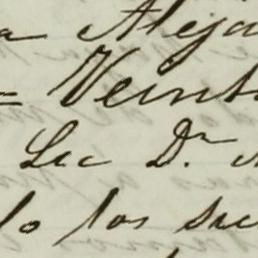 a Aleja
= Veint
Lic D.r
lo los suc